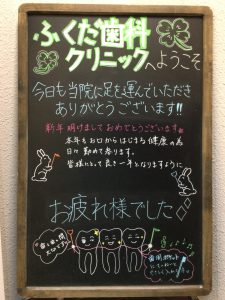 ふくだ歯科
クリニックへようこそ
今日も当院に足を運んでいただき
ありがとうございます!!
新年明けましておめでとうございます。
本年もお口からはじまる健康の為
日々勤めて参ります。
皆様にとって良き一年となりますように
お疲れ様でした
歯周ポケット